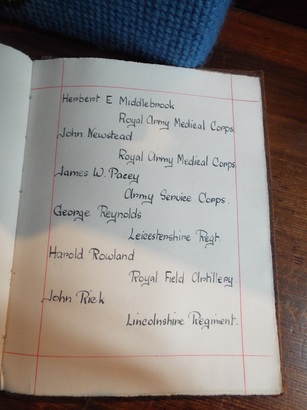 Herbert E Middlebrook
Royal Army Medical Corps
John Newstead
Royal Army Medical Corps
James W. Pacey
Army Service Corps.
George Reynolds
Leicestershire Regt.
Harold Rowland
Royal Field Artillery
John Rick
Lincolnshire Regiment.